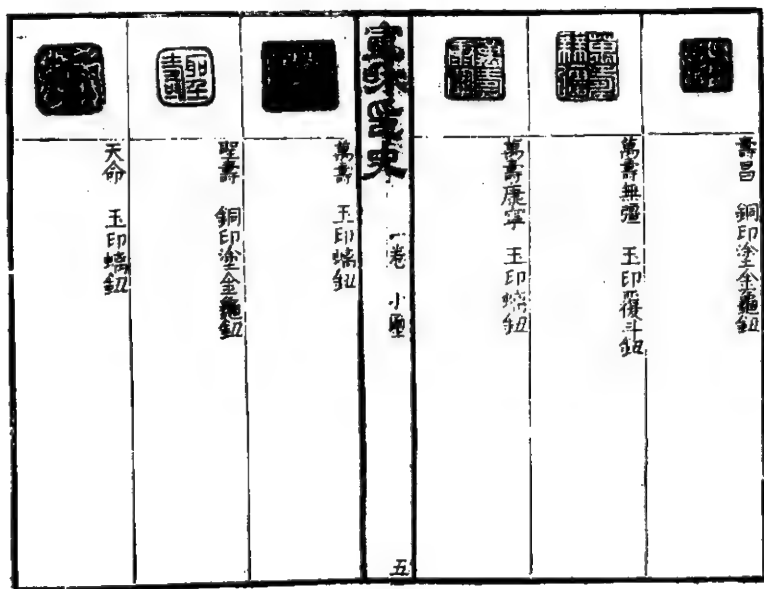 壽昌 銅印塗金龜鈕
萬壽無彊 玉印覆斗鈕
萬壽康寧 玉印螭鈕
一卷 小璽
五
萬壽 玉印螭鈕
聖壽 銅印塗金龜鈕
聖壽
天命 玉印螭鈕